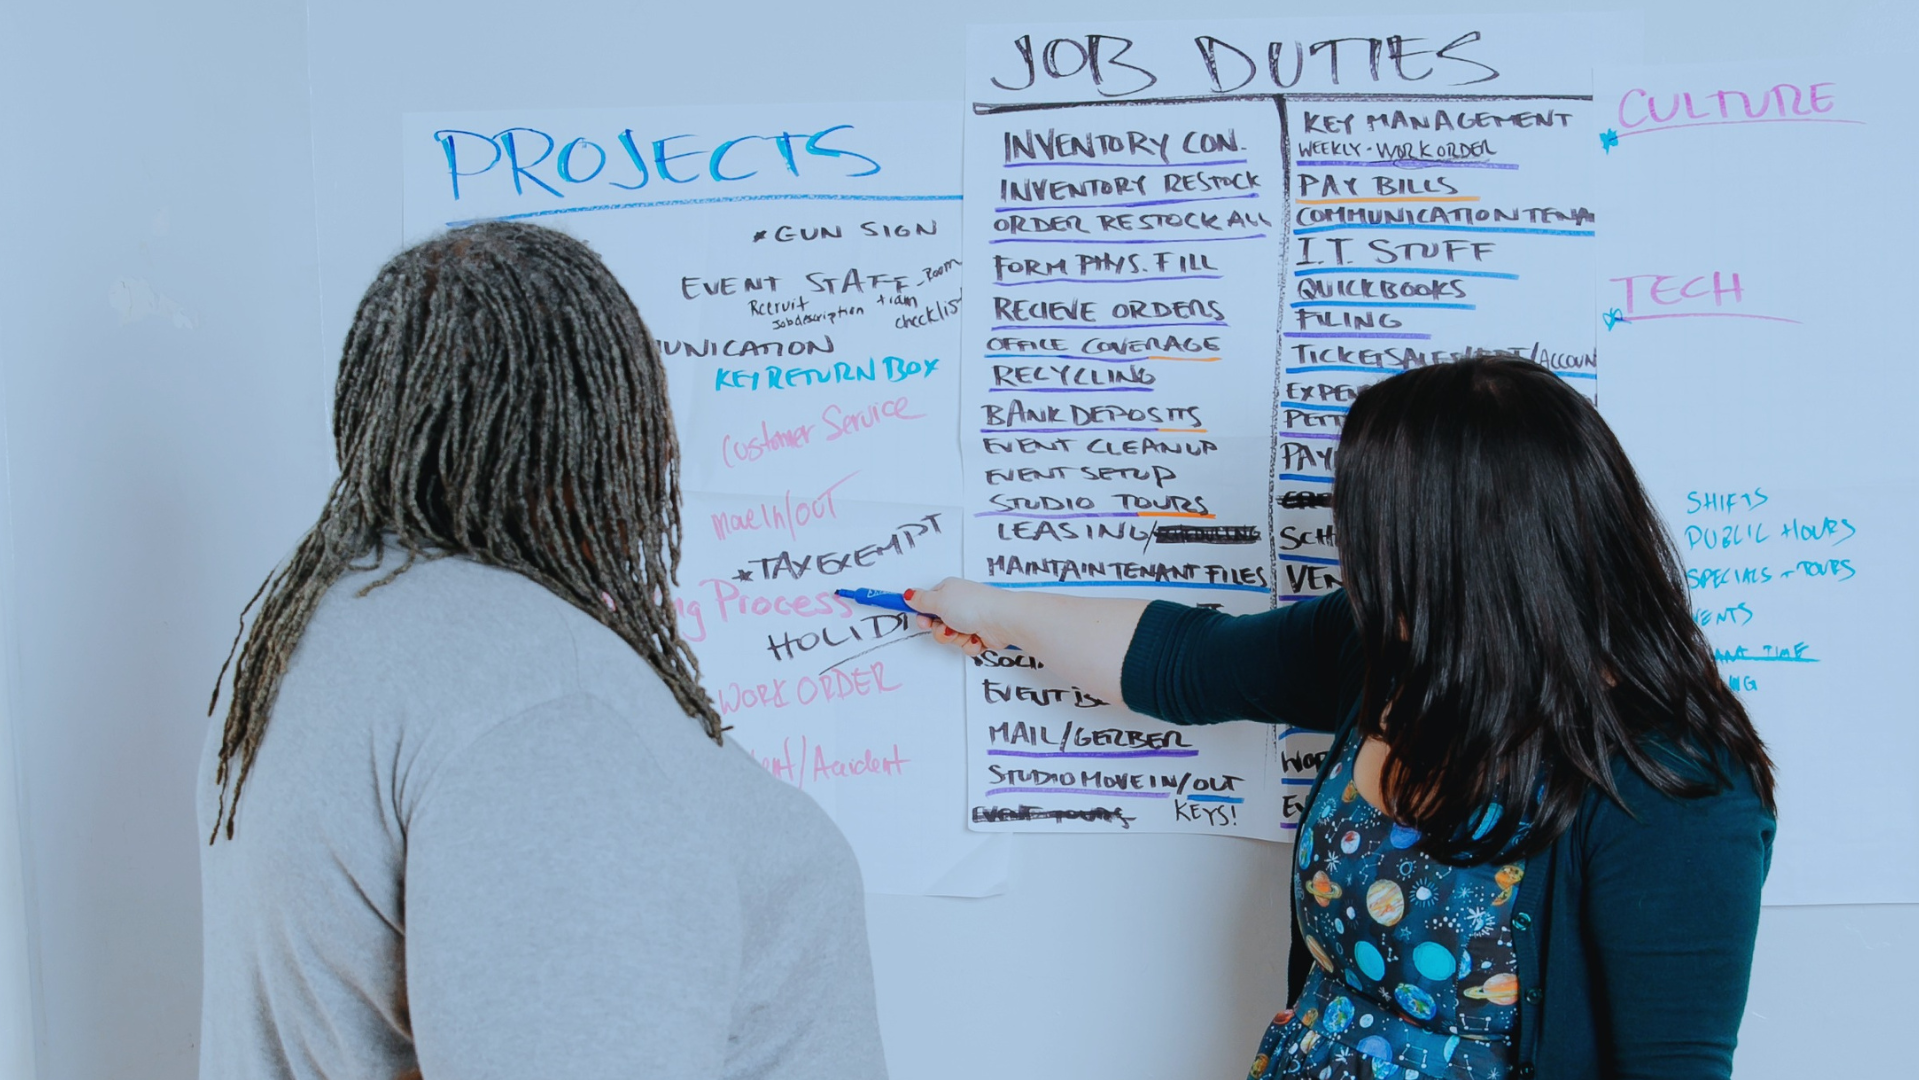 PROJECTS
*GUN SIGN
EVENT STAFF - Room
Recruit train
Jobdescription checklist
UNICATION
KEY RETURN BOX
Customer Service
Move In/OUT
*TAX EXEMPT
ng Process
HOLID
WORK ORDER
ent/Accident
JOB DUTIES
INVENTORY CON.
INVENTORY RESTOCK
ORDER RESTOCK ALL
FORM PHYS. FILL
RECIEVE ORDERS
OFFICE COVERAGE
RECYCLING
BANK DEPOSITS
EVENT CLEANUP
EVENT SETUP
STUDIO TOURS
LEASING/
MAINTAIN TENANT FILES
SOCI
EVENT
MAIL/GERBER
STUDIO MOVE IN/OUT
EVENT TOURS KEYS!
KEY MANAGEMENT
WEEKLY - WORK ORDER
PAY BILLS
COMMUNICATION TENA
I.T. STUFF
QUICKBOOKS
FILING
TICKET SALES/ /ACCOUN
EXPEN
PETT
PAY
SCH
VEN
WOR
EV
CULTURE
TECH
SHIFTS
PUBLIC HOURS
SPECIALS - TOURS
VENTS
TIME
NG